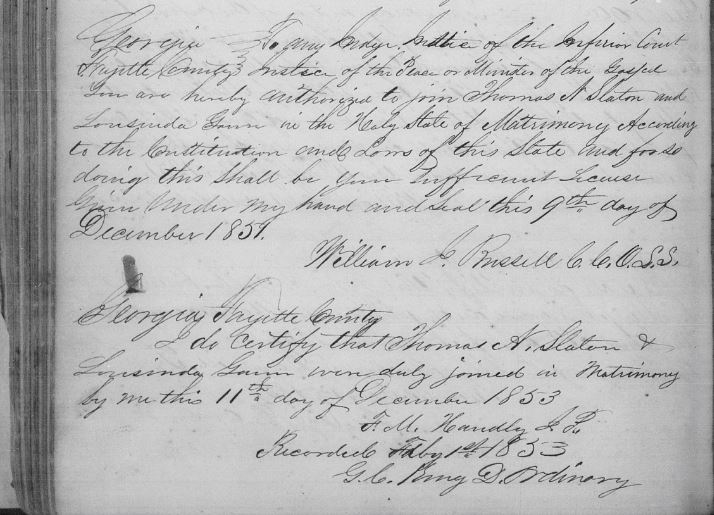 Georgia To any Judge Justice of the Inferior Court
Fayette County Justice of the Peace or Minister of the Gospel
You are hereby authorized to join Thomas N Slaton and
Lousinda Gann in the Holy State of Matrimony According
to the Constitution and Laws of this State and for so
doing this Shall be your Sufficient License
Given Under my hand and seal this 9th day of
December 1851.
William J. Russell C. C. O. L.S.
Georgia Fayette County
I do Certify that Thomas N. Slaton &
Lousinda Gann were duly joined in Matrimony
by me this 11th day of December 1853
F. M. Handley J. P.
Recorded Feby 1st 1853
G. C. King D. Ordinary